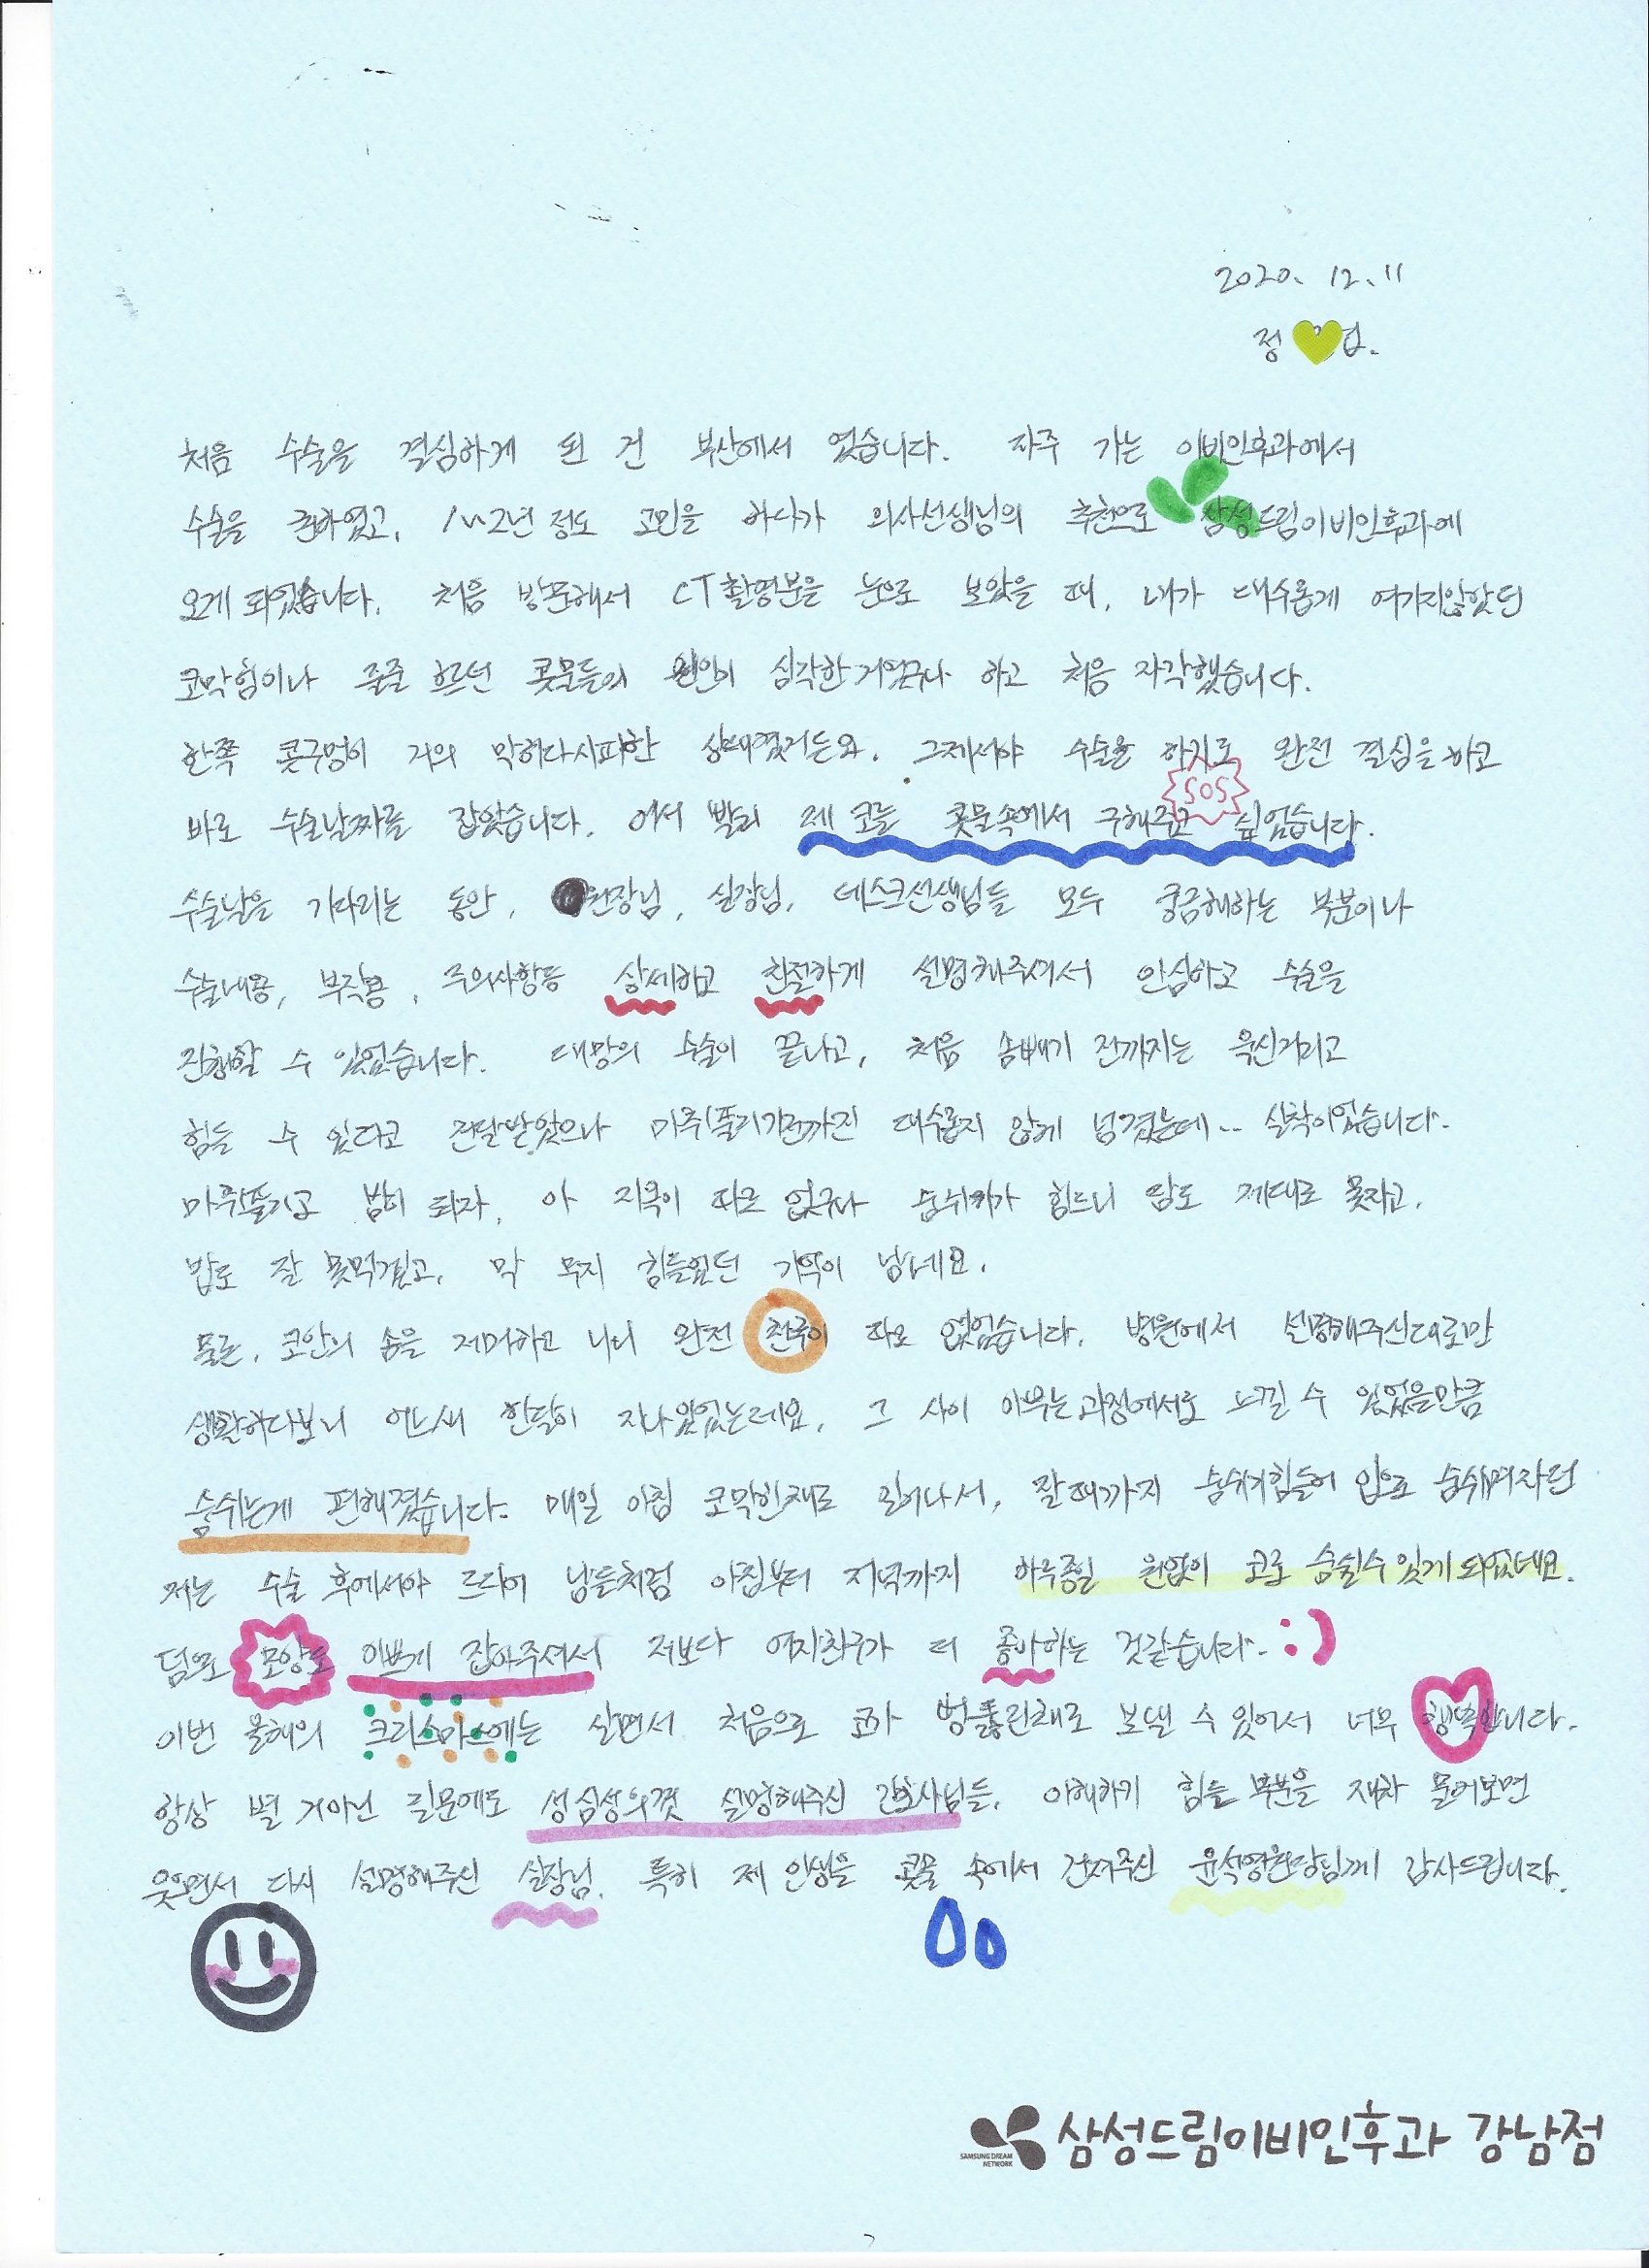 2020. 12. 11
정
처음 수술을 결심하게 된 건 부산에서 였습니다. 자주 가는 이비인후과에서
수술을 권하였고, 1~2년 정도 고민을 하다가 의사선생님의 추천으로 삼성드림이비인후과에
오게 되었습니다. 처음 방문해서 CT촬영분을 눈으로 보았을 때, 내가 대수롭게 여기지않았던
코막힘이나 줄줄 흐르던 콧물들의 원인이 심각한거였구나 하고 처음 자각했습니다.
한쪽 콧구멍이 거의 막히다시피한 상태였거든요. 그제서야 수술을 하기로 완전 결심을 하고
SOS
바로 수술날짜를 잡았습니다. 어서 빨리 제 코를 콧물속에서 구해주고 싶었습니다.
수술날을 기다리는 동안, 원장님, 실장님, 데스크선생님들 모두 궁금해하는 부분이나
수술내용, 부작용, 주의사항등 상세하고 친절하게 설명해주셔서 안심하고 수술을
진행할 수 있었습니다. 대망의 수술이 끝나고, 처음 솜빼기 전까지는 욱신거리고
힘들 수 있다고 전달받았으나 마취풀리기전까진 대수롭지 않게 넘겼는데.. 실착이었습니다.
마취풀리고 밤이 되자, 아 지옥이 따로 없구나 숨쉬기가 힘드니 잠도 제대로 못자고,
밥도 잘 못먹겠고, 막 무지 힘들었던 기억이 남네요.
물론, 코안의 솜을 제거하고 나니 완전 천국이 따로 없었습니다. 병원에서 설명해주신대로만
생활하다보니 어느새 한달이 지나있었는데요, 그 사이 아무는과정에서도 느낄 수 있었을만큼
숨쉬는게 편해졌습니다. 매일 아침 코막힌채로 일어나서, 잘때까지 숨쉬기힘들어 입으로 숨쉬며자던
저는 수술 후에서야 드디어 남들처럼 아침부터 저녁까지 하루종일 원없이 코로 숨쉴수있게되었네요.
덤으로 모양도 이쁘게 잡아주셔서 저보다 여자친구가 더 좋아하는 것같습니다. :)
이번 올해의 크리스마스에는 살면서 처음으로 코가 뻥뚫린채로 보낼 수 있어서 너무 행복합니다.
항상 별 거아닌 질문에도 성심성의껏 설명해주신 간호사님들, 이해하기 힘든 부분을 재차 물어보면
웃으면서 다시 설명해주신 실장님, 특히 제 인생을 콧물 속에서 건져주신 윤석영원장님께 감사드립니다.
SAMSUNG DREAM NETWORK 삼성드림이비인후과 강남점